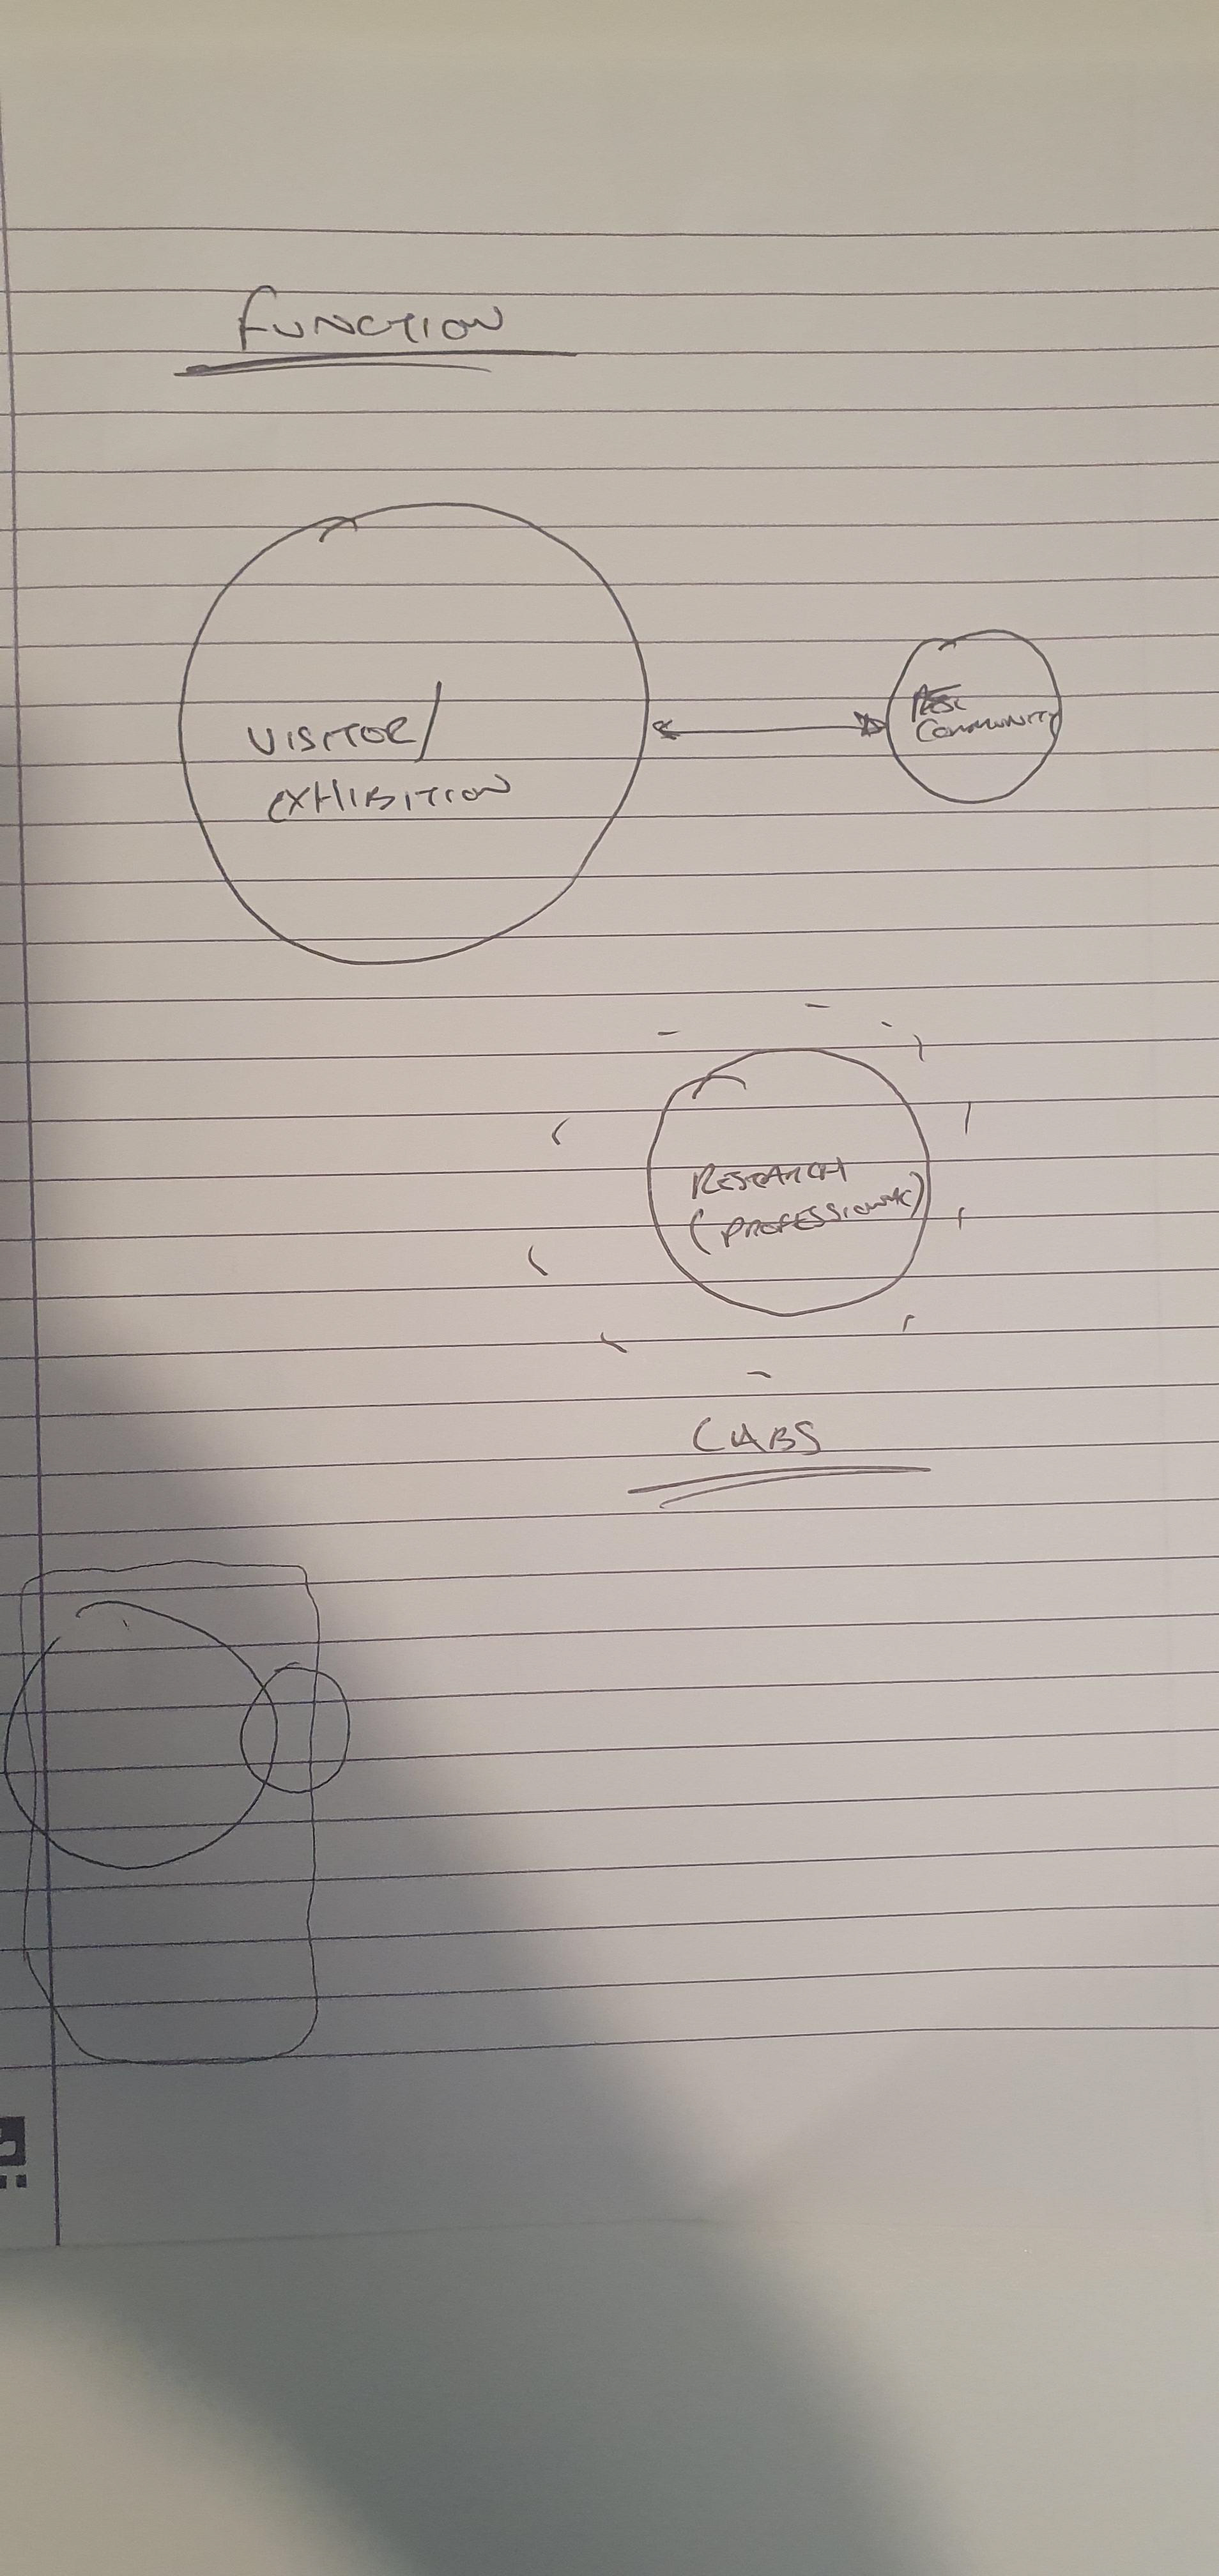 FUNCTION
VISITOR/
EXHIBITION
COMMUNITY
RESEARCH
(PROFESSIONAL)
LABS